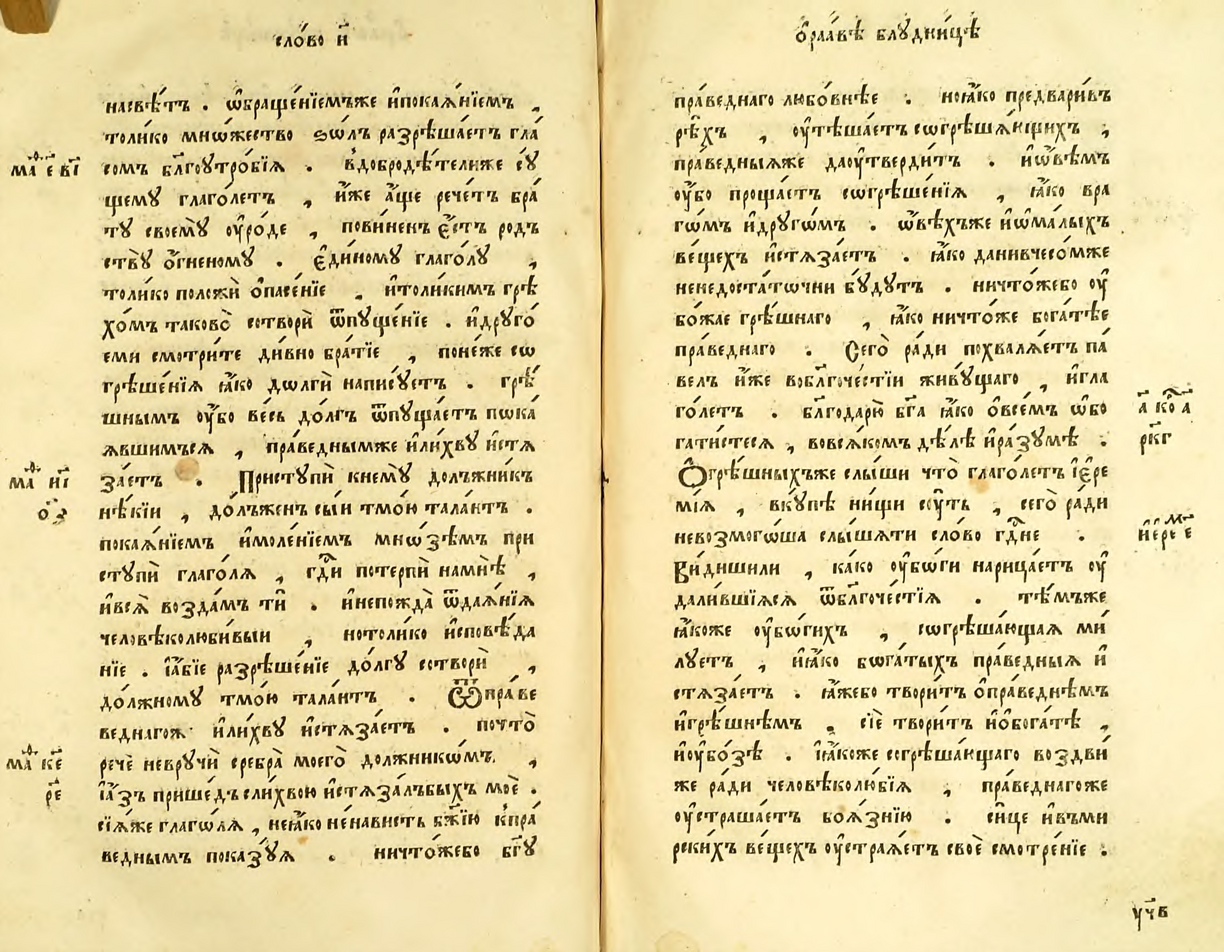 сло́во и҃
на свѣ́тъ . ѡ҆браще́нїемъже и҆покаѧ́нїемъ ,
толи́ко мнѡ́жество ѕѡ́лъ разрѣша́етъ гла́
сомъ бл҃гоутро́бїѧ . вдобродѣ́телиже сꙋ́
маⷴ є҃ в҃і
щемꙋ глаго́летъ , и҆́же а҆́ще рече́тъ бра́
тꙋ своемꙋ̀ оу҆ро́де , пови́ненъ є҆́сть родъ
ствꙋ̀ о҆́гненомꙋ . є҆ди́номꙋ глаго́лꙋ ,
толи́ко положѝ о҆пасе́нїе , и҆толи́кимъ грѣ
хо́мъ таково̀ сотворѝ ѿпꙋще́нїе . и҆дрꙋго́
еми смотри́те ди́вно бра́тїе , поне́же сѡ
грѣше́нїѧ ꙗ҆́ко дѡлгѝ написꙋ́етъ . грѣ́
шнымъ оу҆́бо ве́сь до́лгъ ѿпꙋща́етъ пѡка́
ѧвшимъсѧ , пра́веднымже и҆ли́хвꙋ и҆стѧ
за́етъ . Пристꙋпѝ кнемꙋ̀ до́лъжникъ
маⷴ н҃і
о҃з
нѣ́кїи , до́лъженъ сы́и тмо́ю тала́нтъ .
покаѧ́нїемъ и҆моле́нїемъ мно́ѕѣмъ при
стꙋпѝ глаго́лѧ , гд҇и потерпѝ намнѣ̀ ,
и҆всѧ̀ возда́мъ тѝ . и҆непожда̀ ѿдаѧ́нїѧ
человѣколюби́выи , нотоли́ко и҆сповѣ́да
нїе . і҆а҆́бїе разрѣше́нїе до́лгꙋ сотворѝ ,
до́лжномꙋ тмо́ю тала́нтъ . Ѿпра́ве
веднагож и҆ли́хвꙋ и҆стѧза́етъ . почто̀
речѐ неврꙋчѝ сребра̀ моего̀ должникѡ́мъ ,
маⷴ к҃е
р҃е
і҆а҆́зъ прише́дъ сли́хвою и҆стѧза́лъбыхъ моѐ .
сїѧ́же глаго́лѧ , неꙗ҆́ко не́нависть бж҃їю кпра́
веднымъ пока́зꙋѧ . ничто́жебо бг҃ꙋ
ѡ҆раа́вѣ блꙋдни́цѣ
пра́веднаго любо́внѣе . ноꙗ҆́ко предвари́въ
рѣ́хъ , оу҆тѣша́етъ сѡгрѣша́ющихъ ,
пра́ведныѧже даоу҆тверди́тъ . и҆ѡ҆в́ѣмъ
оу҆́бо проща́етъ сѡгрѣше́нїѧ , ꙗ҆́ко вра
гѡ́мъ и҆дрꙋгѡ́мъ . ѡ҆в́ѣхъже и҆ѡ҆ма́лыхъ
ве́щехъ и҆стѧза́етъ . ꙗ҆́ко данивчесо́мже
ненедоста́тѡчни бꙋ́дꙋтъ . ничто́жебо оу҆
бо́жае грѣ́шнаго , ꙗ҆́ко ничто́же бога́тѣе
пра́веднаго . Сего̀ ра́ди похвалѧ́етъ па́
велъ и҆́же вобл҃гоче́стїи живꙋ́щаго , и҆гла
го́летъ . бл҃годарю̀ бг҃а ꙗ҆́ко ѡ҆все́мъ ѡ҆бо
а҃ коⷬ҇ а҃
рк҃г
гати́стесѧ , вовсѧ́комъ дѣ́лѣ и҆ра́зꙋмѣ .
Ѻ҆грѣ́шныхъже слы́ши что̀ глаго́летъ і҆ере
мі́ѧ , вкꙋ́пѣ ни́щи сꙋ́ть , сего̀ ра́ди
невозмого́ша слы́шѧти сло́во гд҇не .
і҆ер е҃
Ви́дишили , ка́ко оу҆бо́ги нарица́етъ оу҆
дали́вшїѧсѧ ѿбл҃гоче́стїѧ . тѣ́мъже
ꙗ҆́коже оу҆бо́гихъ , сѡгрѣша́ющаѧ ми́
лꙋетъ , и҆ꙗ҆́ко бѡга́тыхъ пра́ведныѧ и҆
стѧза́етъ . ꙗ҆́жебо твори́тъ о҆пра́веднѣмъ
и҆грѣ́шнѣмъ , сїѐ твори́тъ и҆о҆бога́тѣ ,
и҆оу҆бо́зѣ . і҆ꙗ҆́коже согрѣша́ющаго воздви
же ра́ди человѣколю́бїѧ , пра́веднагоже
оу҆страша́етъ боѧ́знїю . си́це и҆въми
рски́хъ ве́щехъ оу҆стралѧ́етъ своѐ смотре́нїе .
уч҃в